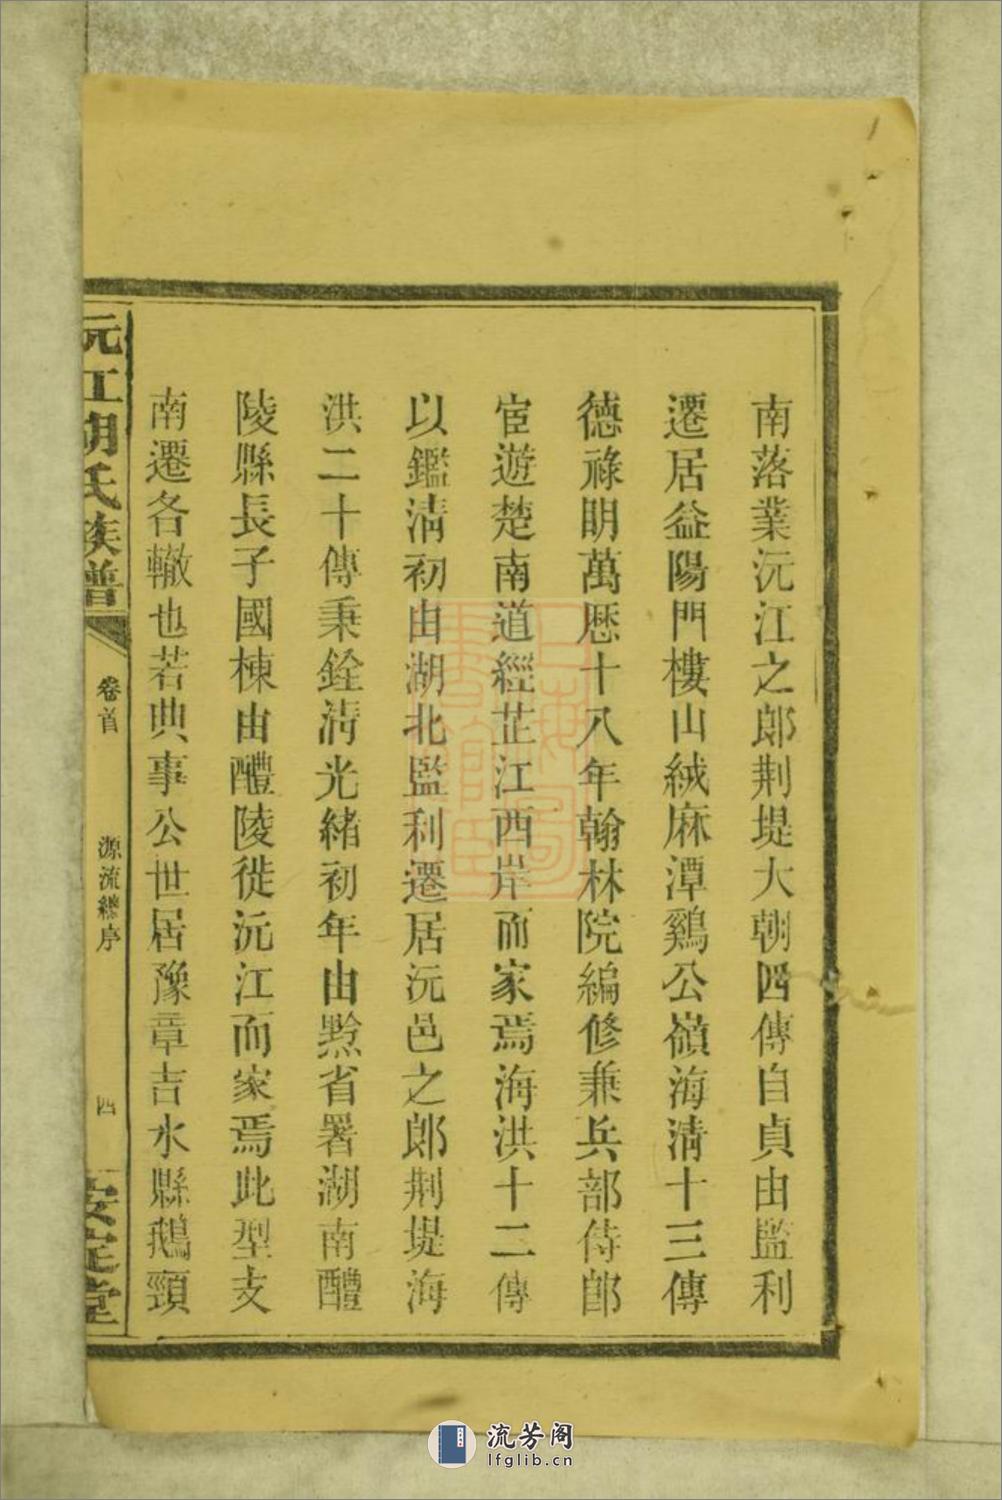 南落業沅江之郎荆堤大朝四傳自貞由監利
遷居益陽門樓山絨麻潭鷄公嶺海清十三傳
德祿明萬厯十八年翰林院編修兼兵部侍郎
宦遊楚南道經芷江西岸而家焉海洪十二傳
以鑑清初由湖北監利遷居沅邑之郎荆堤海
洪二十傳秉銓清光緒初年由黔省署湖南醴
陵縣長子國棟由醴陵徙沅江而家焉此型支
南遷各轍也若典事公世居豫章吉水縣鵝頸
沅江胡氏族譜
卷首
源流總序
四
安定堂
流芳阁
lfglib.cn